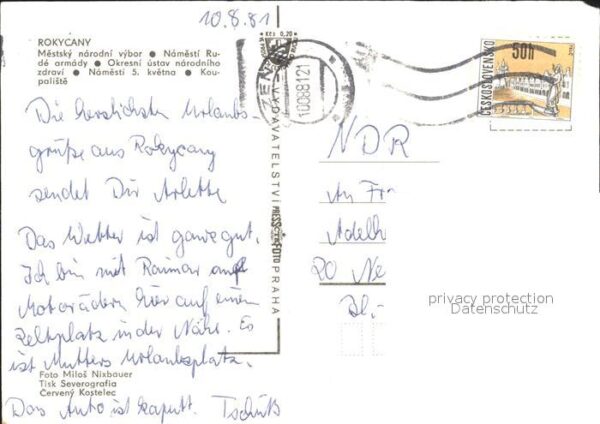 10.8.81
ROKYCANY
Městský národní výbor ● Náměstí Ru-
dé armády ● Okresní ústav národního
zdraví ● Náměstí 5. května ● Kou-
paliště
Die herzlichsten Urlaubs-
grüße aus Rokycany
sendet Dir Arlette
Das Wetter ist ganz gut.
Ich bin mit Raimar auf
Motorrädern hier auf einem
Zeltplatz in der Nähe. Es
ist Mutters Urlaubsplatz.
Foto Miloš Nixbauer
Tisk Severografia
Červený Kostelec
Das Auto ist kaputt. Tschüß
Kčs 0,20
VYDAVATELSTVÍ PRESSFOTO PRAHA
10.08.81.12
ČESKOSLOVENSKO
50h
NDR
An Fr
Adelh
20 Ne
Bl.-
privacy protection
Datenschutz